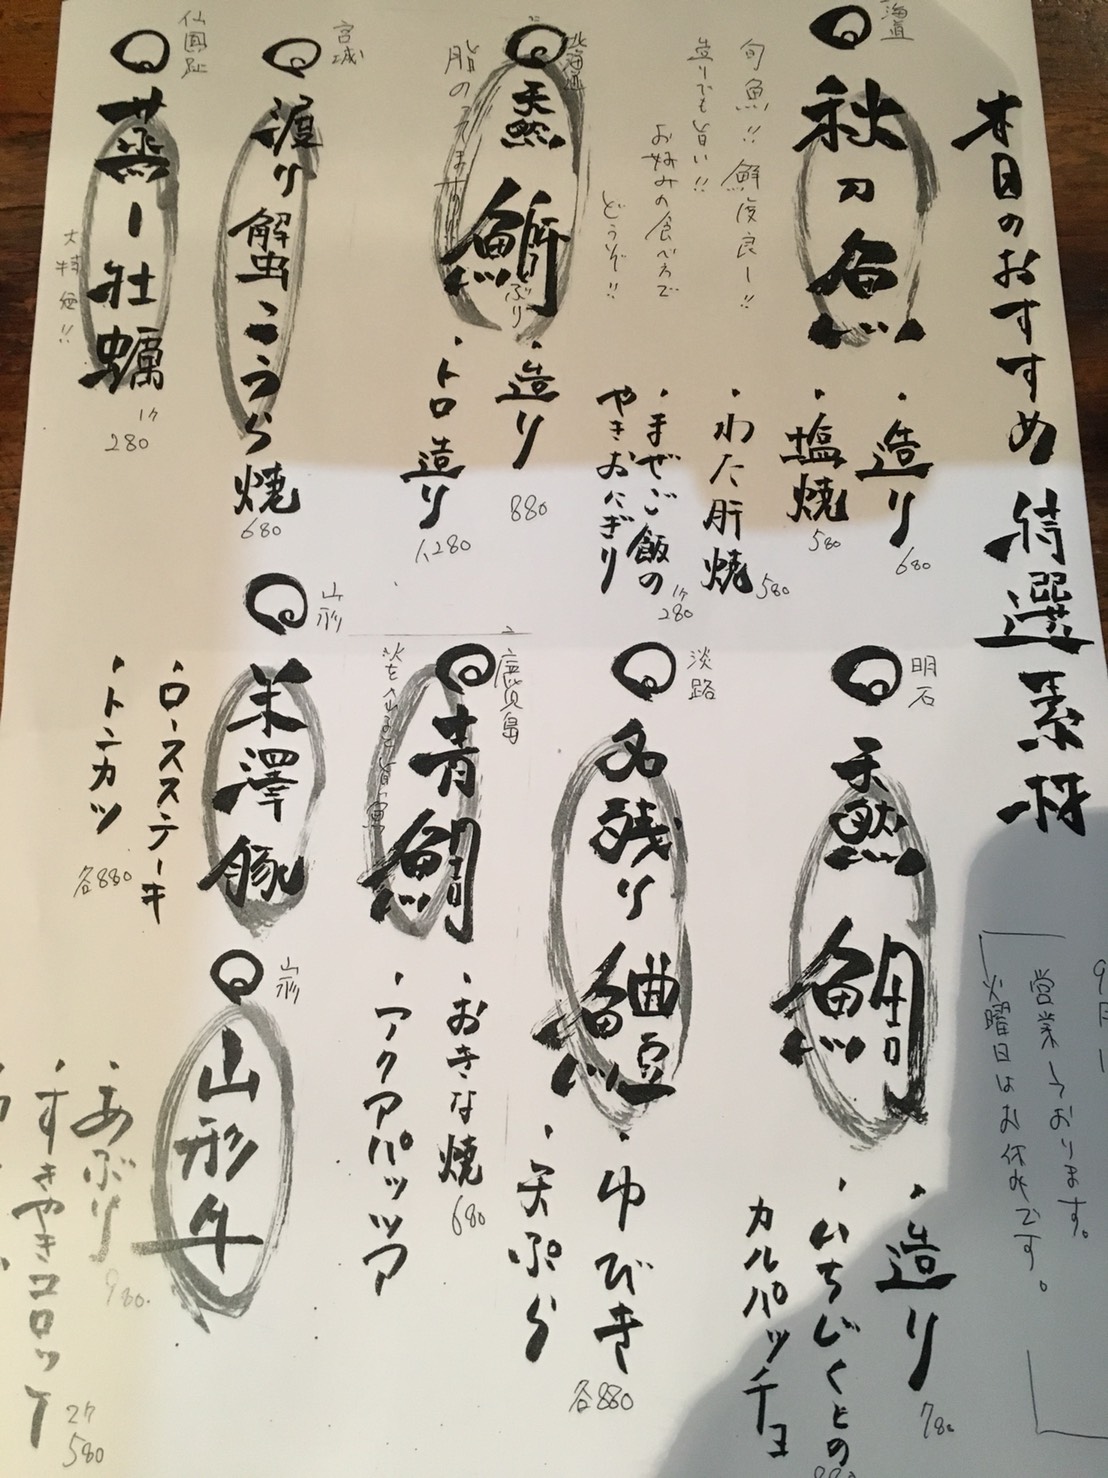 本日のおすすめ 特選素材
9月
営業しております。
火曜日はお休みです。
海道
秋刀魚
旬魚!! 鮮度良し!!
造りでも旨い!!
お好みの食べ方で
どうぞ!!
・造り
680
・塩焼
580
・わた肝焼
580
・まぜご飯の
やきおにぎり
1ケ
280
北海道
天然 鰤
ぶり
・造り
880
・トロ造り
1,280
宮城
渡り蟹こうら焼
680
蒸し牡蠣
大特価!!
1ケ
280
明石
天然 鯛
・造り
780
・いちじくとの
カルパッチョ
880
淡路
名残り鱧
・ゆびき
・天ぷら
各880
青鯛
・おきな焼
680
・アクアパッツア
山形
米澤豚
・ロースステーキ
・トンカツ
各880
山形
山形牛
・あぶり
980.
・すきやきコロッケ
2ケ
580